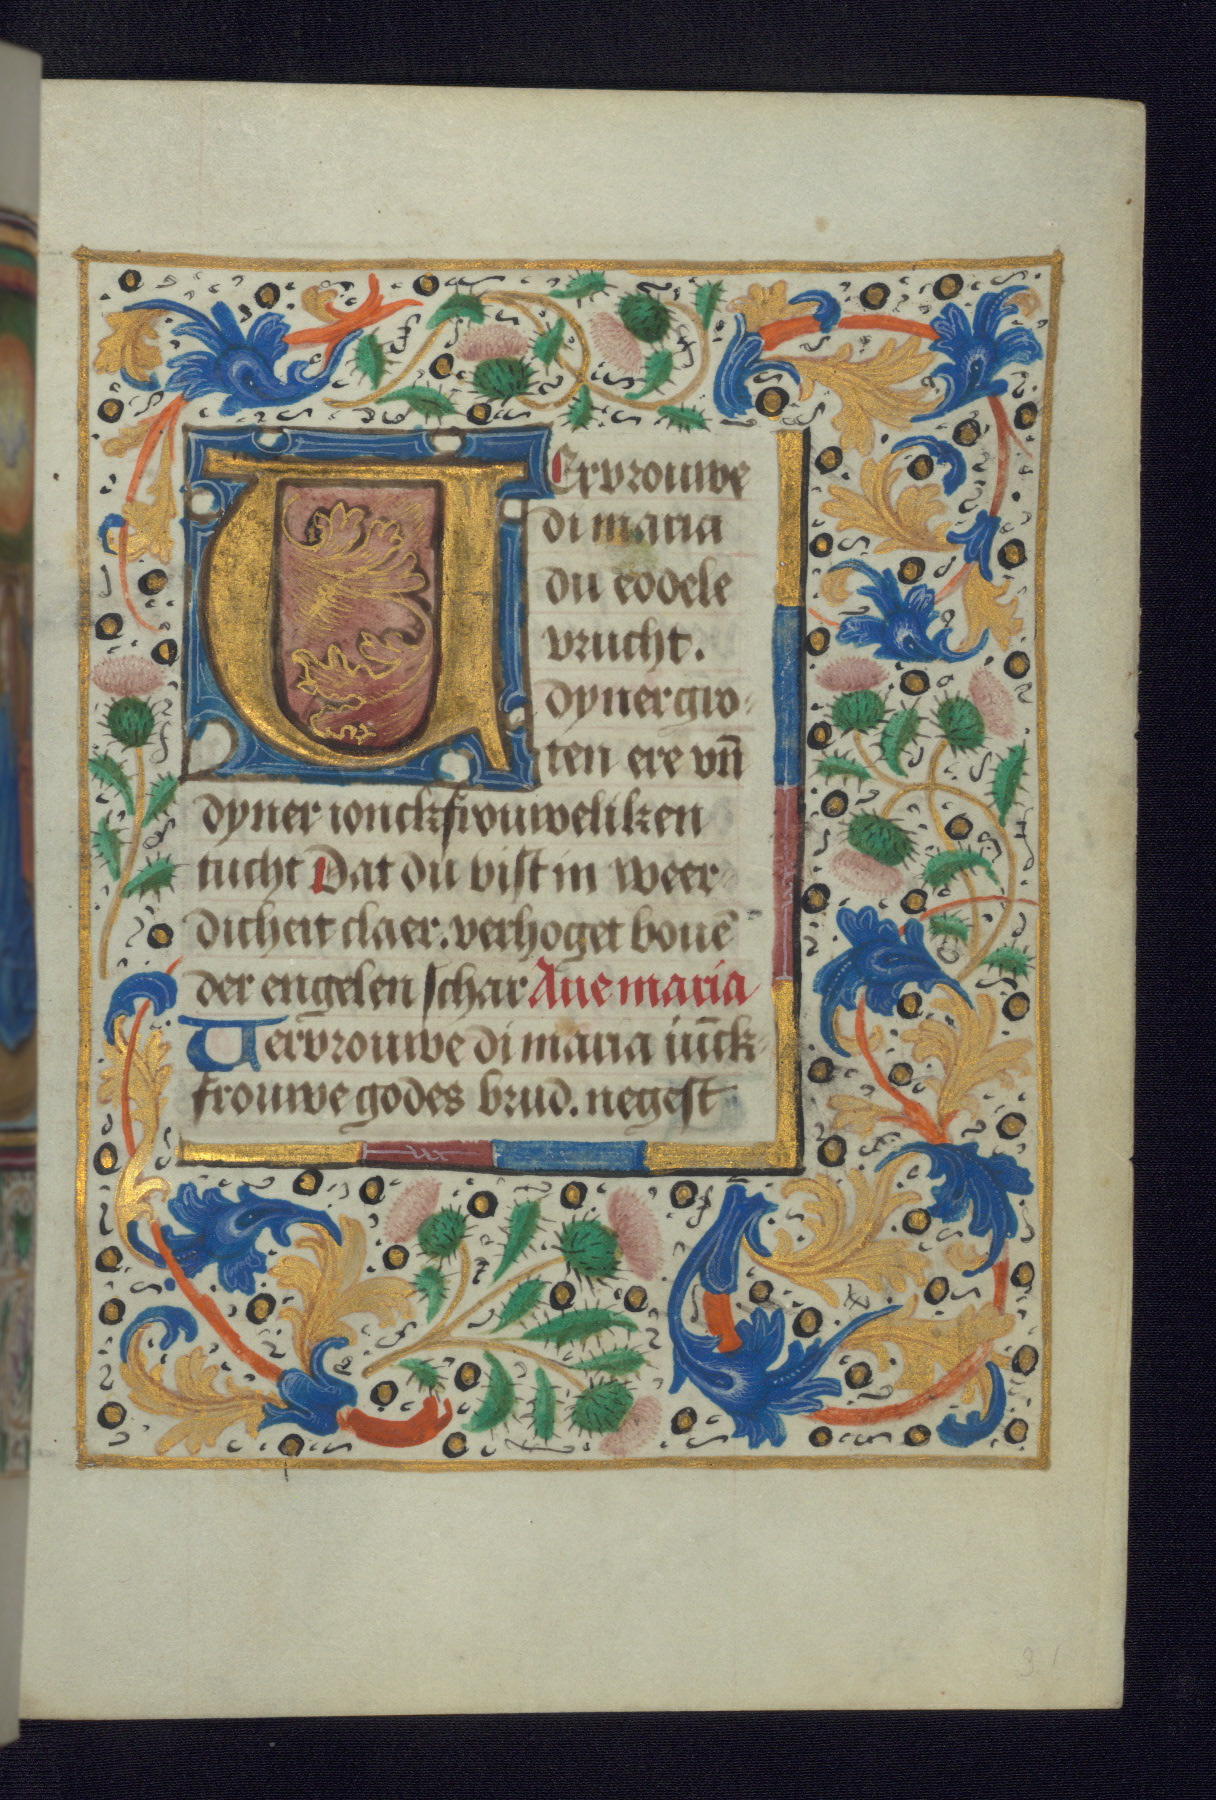 VErvrouwe
di maria
du eddele
vrucht.
dyner gro-
ten ere vn̄
dyner ionckfrouweliken
tucht Dat du bist in weer-
dicheit claer. verhoget bouē
der engelen schar Aue maria
Vervrouwe di maria iūck-
frouwe godes brud. negest
91